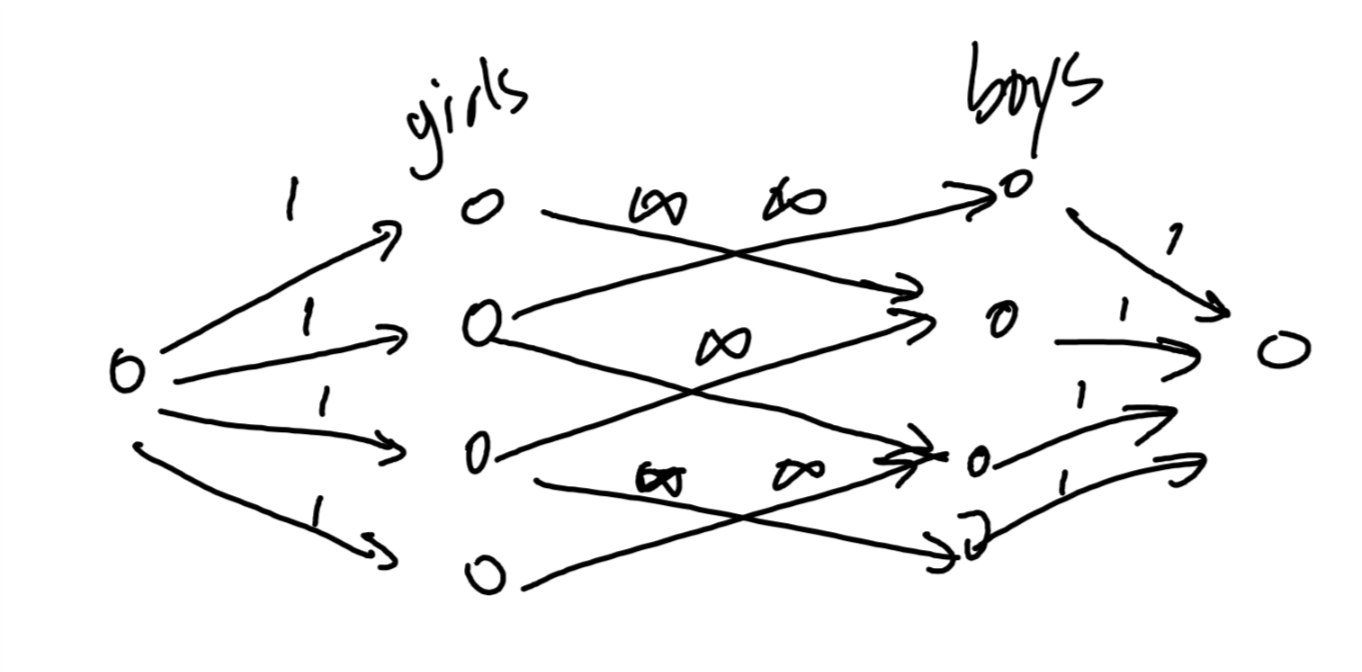 girls boys
1 ∞ ∞ 1
1 ∞ 1
1 1
∞ ∞
1 1